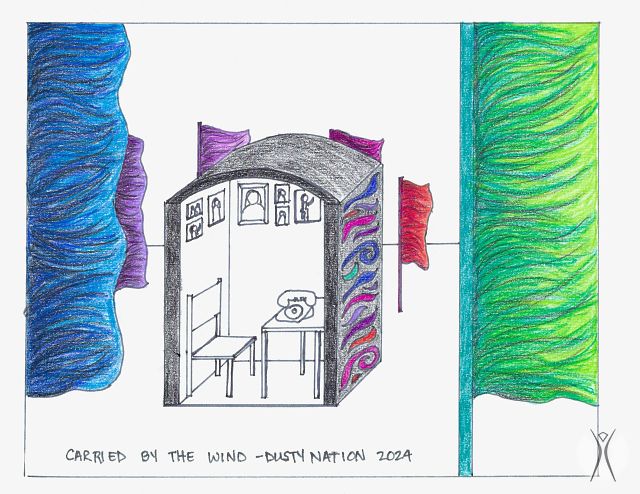 CARRIED BY THE WIND - DUSTY NATION 2024